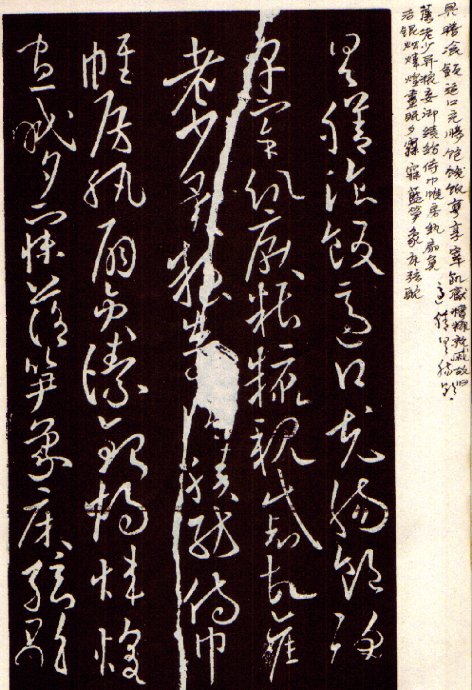 具膳飡飯適口充腸飽飫享宰飢厭糟糠親戚故旧
老少異粮妾御績紡侍巾帷房紈扇員
洁銀燭煒煌晝眠夕寐藍笋象床弦歌
具膳飡飯適口充腸飽飫
享宰飢厭糟糠親戚故舊
老少異糧妾績紡侍巾
帷房紈扇員潔銀燭煒煌
晝眠夕寐藍笋象床弦歌